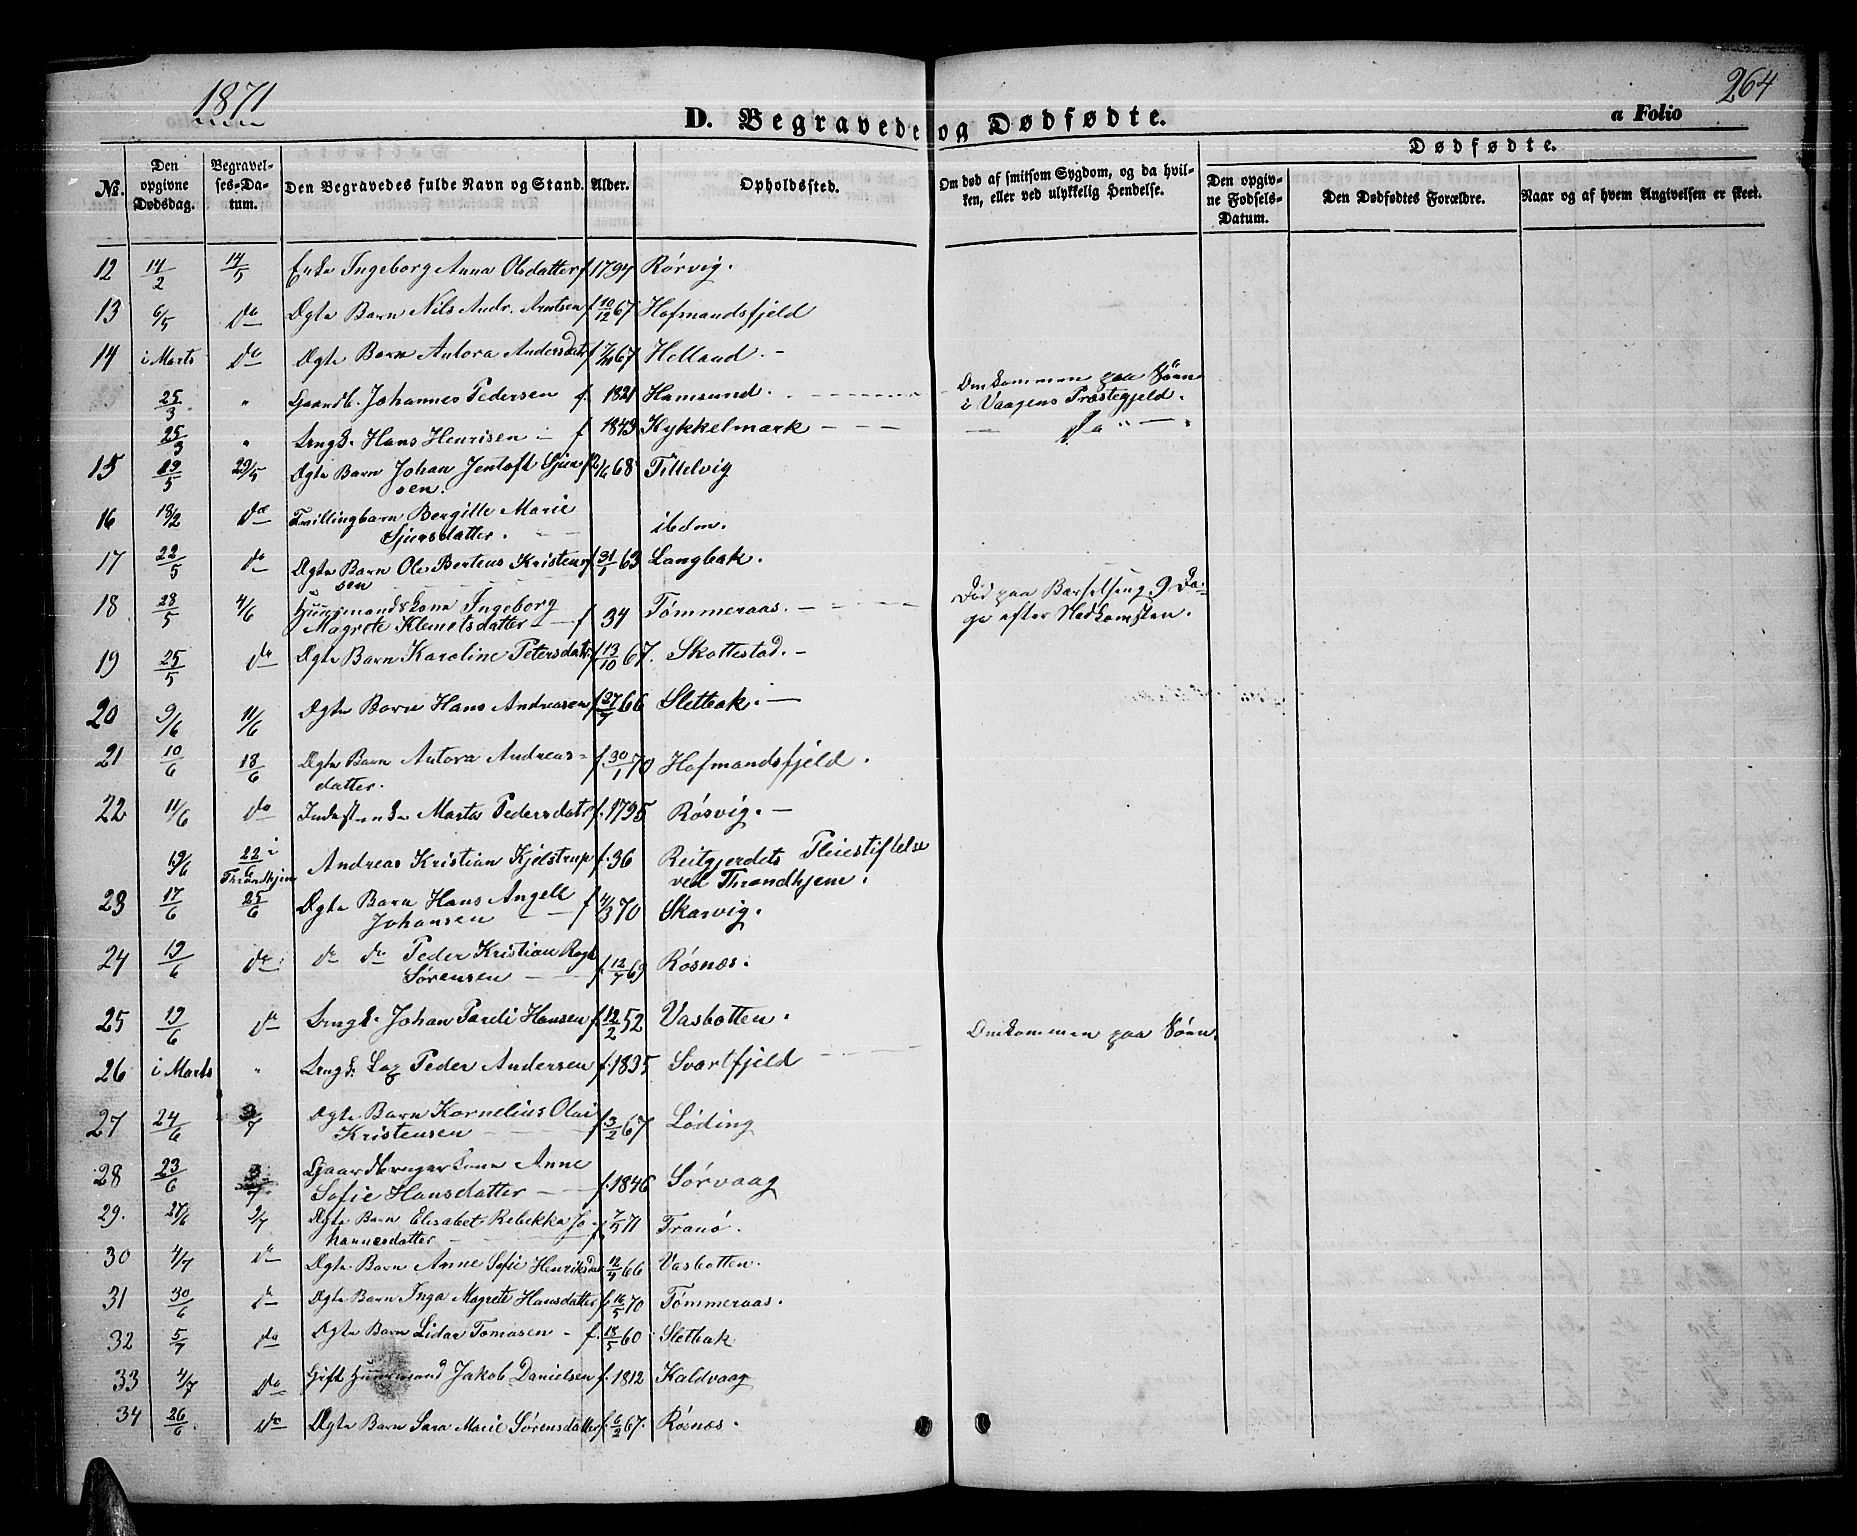 1871
264
D. Begravede og Dødfødte.
a Folio
Dødfødte.
No.
Den opgivne Dødsdag.
Begravelses-Datum.
Den Begravedes fulde Navn og Stand.
Alder.
Opholdssted.
Om død af smitsom Sygdom, og da hvilken, eller ved ulykkelig Hendelse.
Den opgivne Fødsels-Datum.
Den Dødfødtes Forældre.
Naar og af hvem Angivelsen er skeet.
12 14/2 14/5 Enke Ingeborg Anna Olsdatter f 1794 Rørvig.
13 6/5 do Ægte Barn Nils Andr. Arntsen f. 10/12 67 Hofmandsfjeld
14 i Marts do Ægte Barn Antora Andersdatr f 67 Helland.
25/3 " Gaardb. Johannes Pedersen f. 1821 Hamsund. Omkommen paa Søen
i Vaagens Præstegjeld.
25/3 " Ungk. Hans Henrisen f 1843 Kykkelmark do
15 19/5 29/5 Ægte Barn Johan Jentoft Sjur 68 Tittelvig
sen.
16 18/2 do Tvillingbarn Bergitte Marie
Sjursdatter. ibdm.
17 22/5 do Ægte Barn Ole Berteus Kristen f. 31/5 63 Langbak.
sen
18 28/5 4/6 Huusmandskona Ingeborg Død paa Barselseng 9 Da-
Magrete Klemetsdatter f 34 Tømmeraas. ge efter Nedkomsten.
19 25/5 do Ægte Barn Karoline Petersdatr f 13/10 67. Skottestad.
20 9/6 11/6 Ægte Barn Hans Andreasen f 27/7 66 Sletbak.
21 10/6 18/6 Ægte Barn Antora Andreas- f. 30/1 70 Hofmandsfjeld.
datter.
22 11/6 do Inderstenke Marta Pedersdatr f. 1795 Røsvig.
19/6 22/6 i Throndhjem Andreas Kristian Kjelstrup f. 36 Reitgjerdets Pleiestiftelse
ved Throndhjem.
23 17/6 25/6 Ægte Barn Hans Angell
Johansen f 4/3 70 Skarvig.
24 19/6 do do do Peder Kristian Rogh
Sørensen f. 12/7 69 Røsnæs.
25 19/6 do Ungk. Johan Pareli Hansen f. 12/2 52 Vasbotten. Omkommen paa Søen.
26 i Marts " Ungk. Lap Peder Andersen f. 1835 Svartfjeld
27 24/6 3/7 Ægte Barn Kornelius Olai
Kristensen f 3/2 67 Løding
28 23/6 3/7 Gaardbrugerkone Anne
Sofie Hansdatter f. 1846 Sørvaag
29. 27/6 9/7 Ægte Barn Elisabet Rebekka Jo f. 7/5 71 Tranø.
hannesdatter
30 4/7 do Ægte Barn Anne Sofie Henriksdatr 12/4 66 Vasbotten.
31 30/6 do Ægte Barn Inga Magrete Hansdatter f. 16/5 70 Tømmeraas.
32 5/7 do Ægte Barn Lidar Tomasen f. 18/5 60 Sletbak
33 4/7 do Gift Huusmand Jakob Danielsen f. 1812 Kaldvaag
34 26/6 do Ægte Barn Sara Marie Sørensdatter f. 6/2 67. Røsnæs.